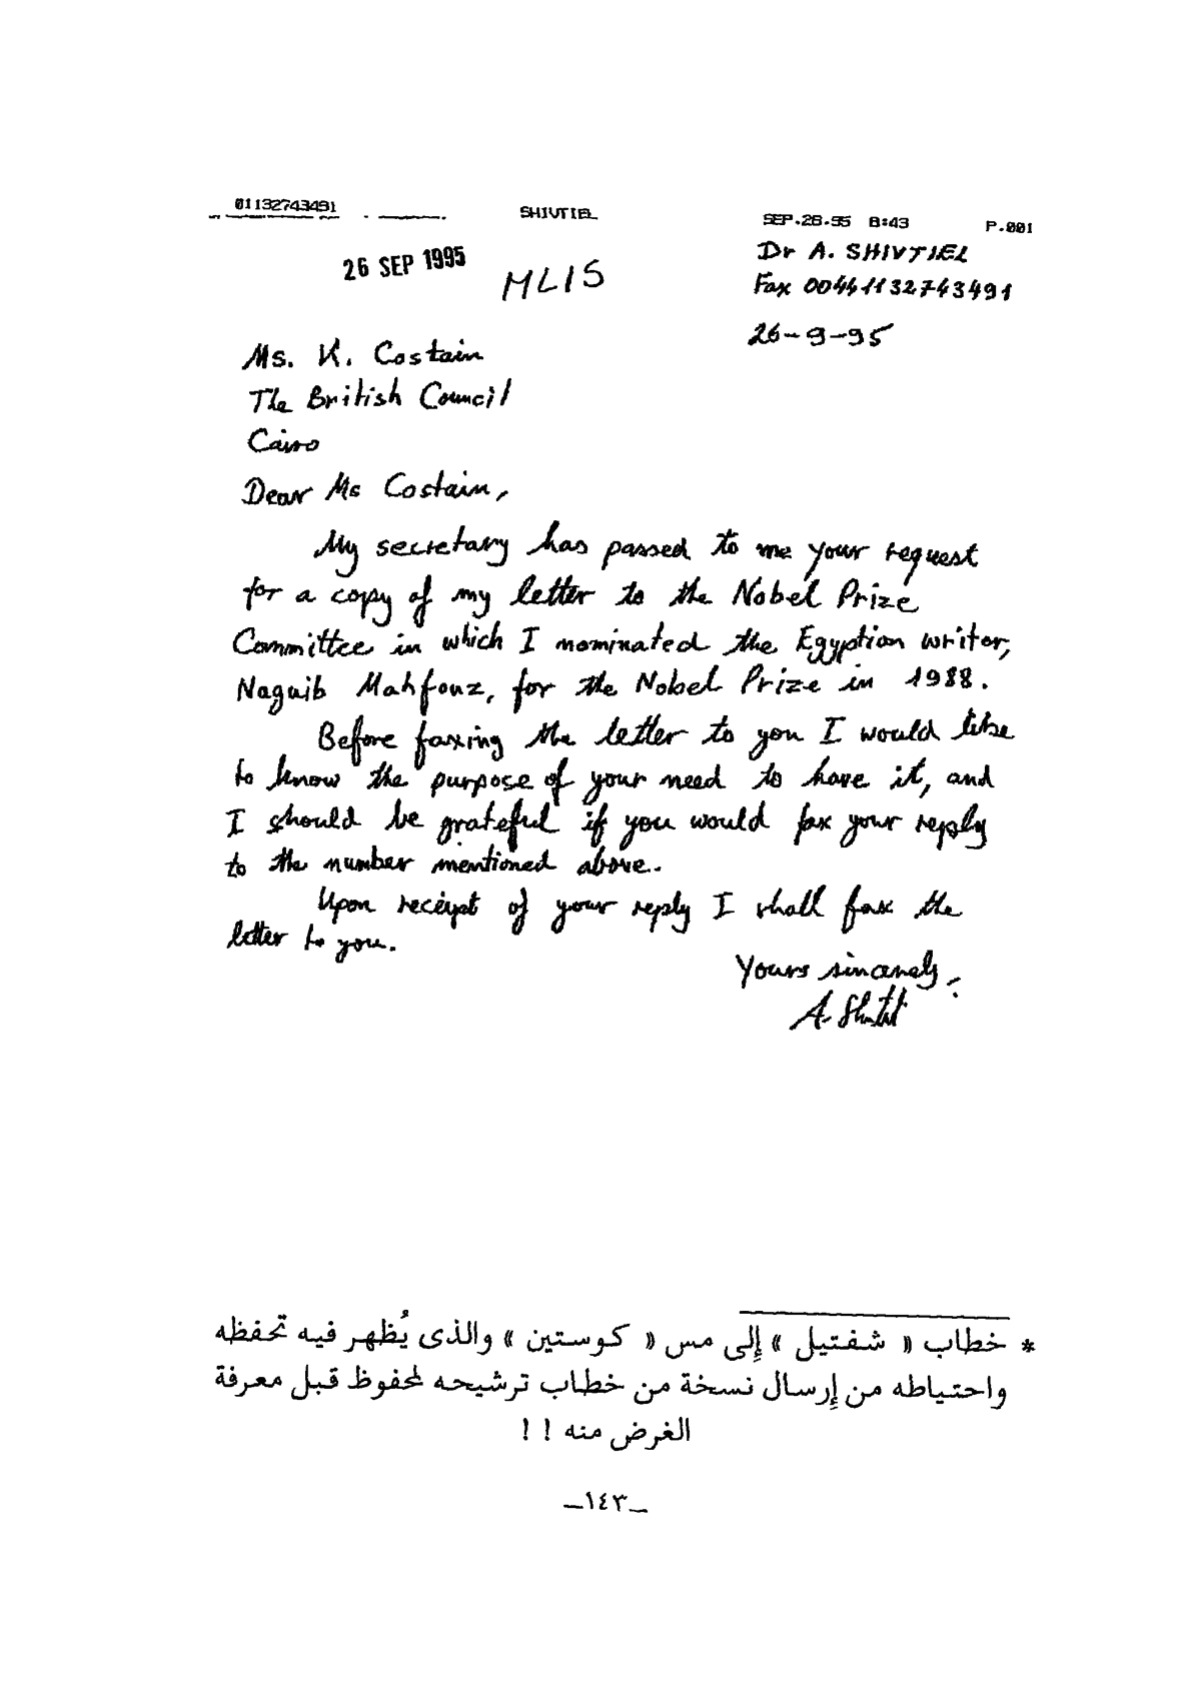 01132743491 SHIVTIEL SEP.26.95 8:43 P.001
26 SEP 1995 MLIS Dr A. SHIVTIEL
Fax 00441132743491
26-9-95
Ms. K. Costain
The British Council
Cairo
Dear Ms Costain,
My secretary has passed to me your request
for a copy of my letter to the Nobel Prize
Committee in which I nominated the Egyption writer,
Naguib Mahfouz, for the Nobel Prize in 1988.
Before faxing the letter to you I would like
to know the purpose of your need to have it, and
I should be grateful if you would fax your reply
to the number mentioned above.
Upon receipt of your reply I shall fax the
letter to you.
Yours sincerely,
* خطاب « شفتيل » إلى مس « كوستين » والذى يُظهر فيه تحفظه
واحتياطه من إرسال نسخة من خطاب ترشيحه لمحفوظ قبل معرفة
الغرض منه ! !
ـ١٤٣ـ